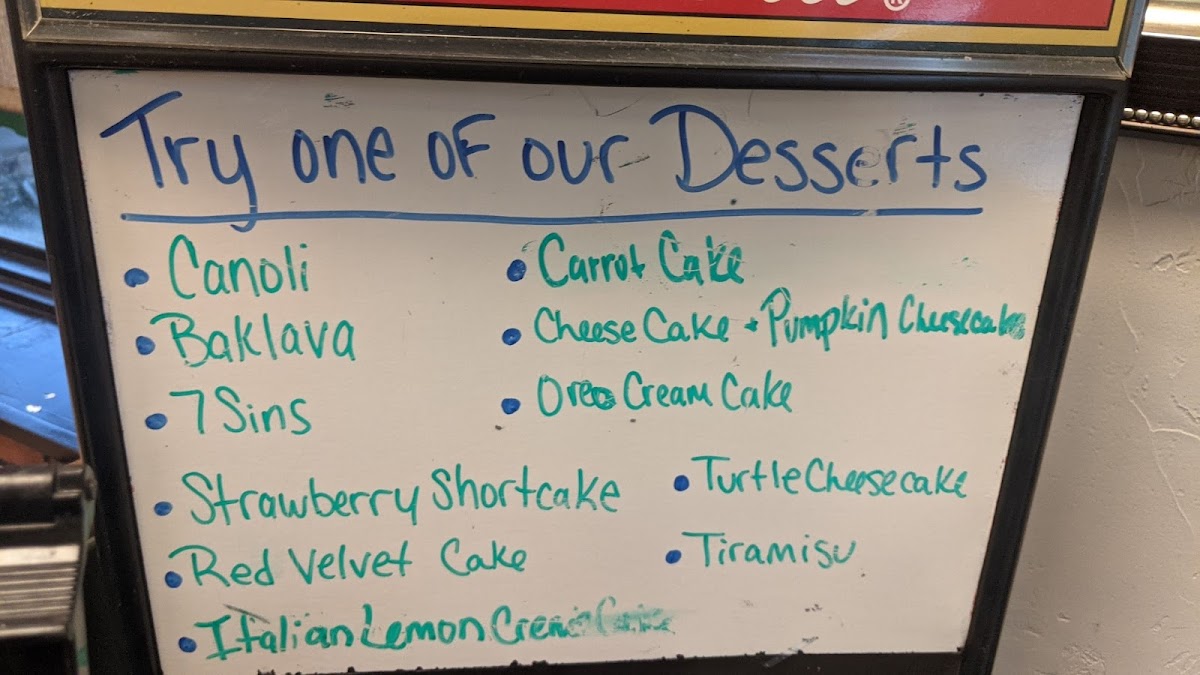 Try one of our Desserts
• Canoli
• Baklava
• 7 Sins
• Strawberry Shortcake
• Red Velvet Cake
• Italian Lemon Cream Cake
• Carrot Cake
• Cheese Cake + Pumpkin Cheesecake
• Oreo Cream Cake
• Turtle Cheesecake
• Tiramisu
®